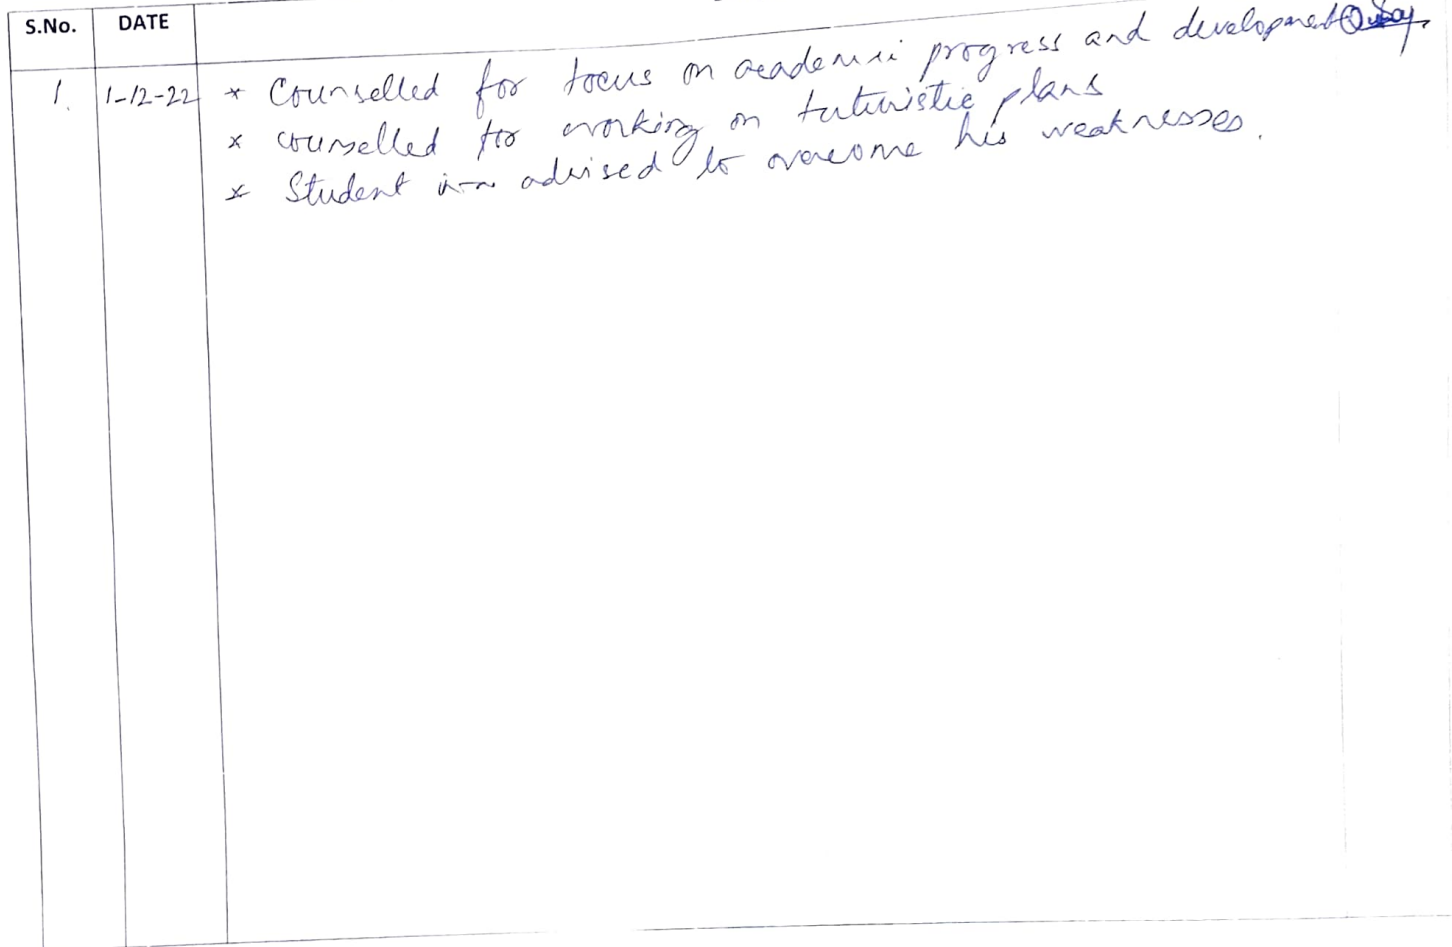 S.No. DATE
1. 1-12-22 * Counselled for focus on academic progress and development
* counselled for working on futuristic plans
* Student is advised to overcome his weaknesses.